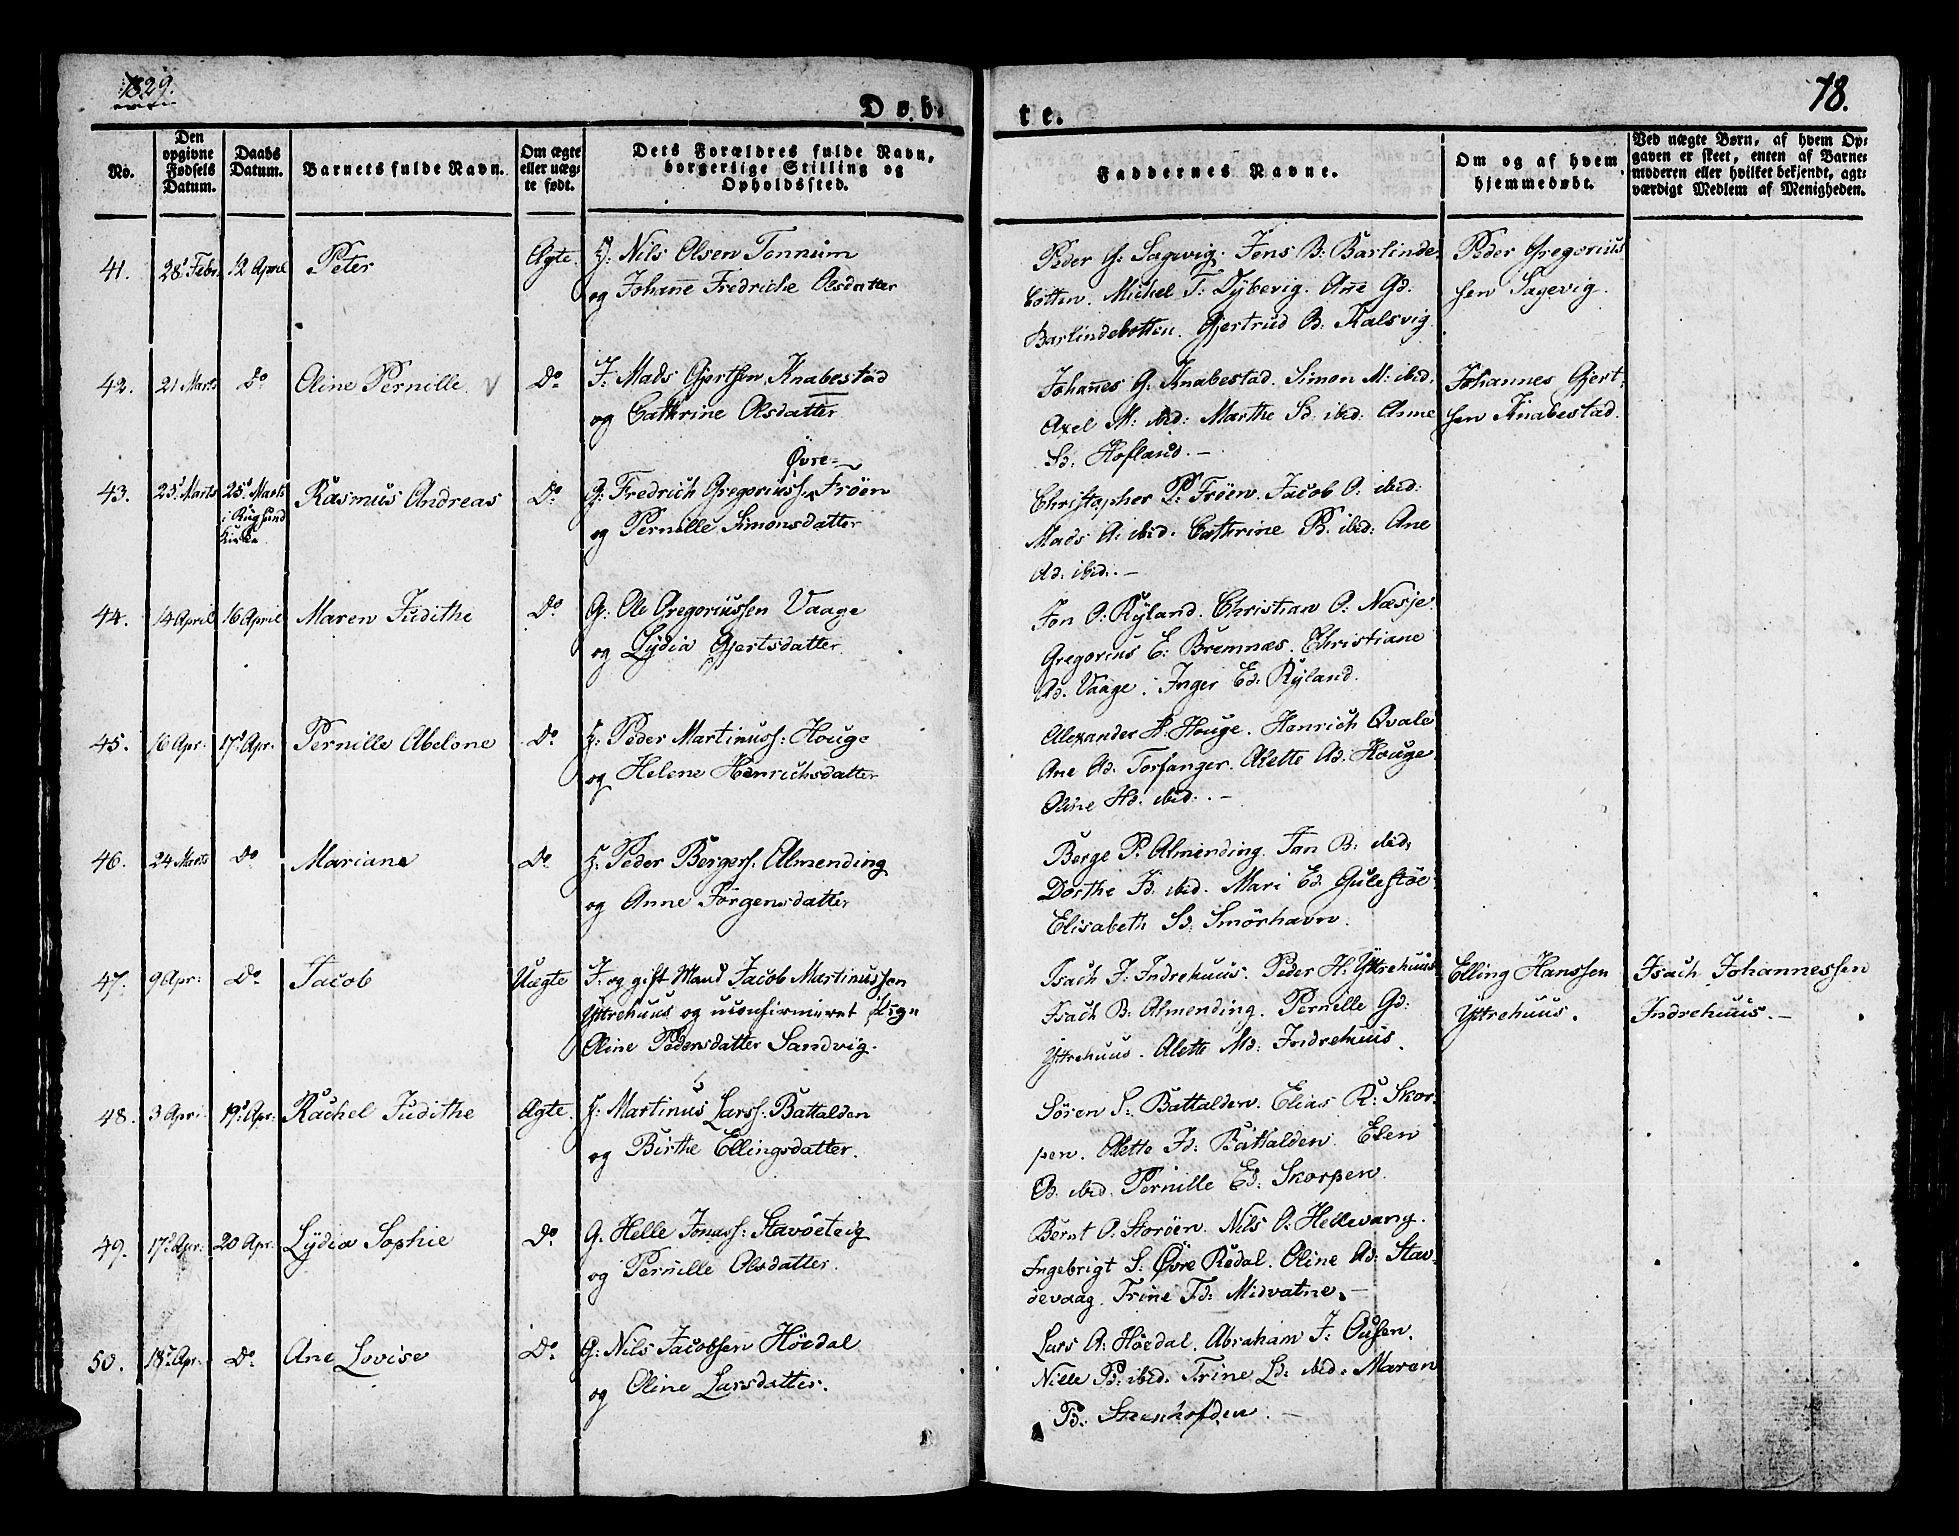 1829.
78.
Døb-
te.
No.
Den opgivne Fødsels Datum.
Daabs Datum.
Barnets fulde Navn.
Om ægte eller uæg-
te født.
Dets Forældres fulde Navn,
borgerlige Stilling og
Opholdssted.
Faddernes Navne.
Om og af hvem
hjemmedøbt.
Ved uægte Børn, af hvem Op-
gaven er skeet, enten af Barne-
moderen eller hvilket bekjendt, agt-
værdigt Medlem af Menigheden.
41. 28 Febr. 12 April Peter Ægte. Nils Olsen Tonnum
og Johanne Fredriche Olsdatter
Peder G: Sagevig. Jens B: Barlinde-
botten. Michel T: Dybevig. Ane Gd:
Barlindebotten. Gjertrud Bd: Kalsvig.
Peder Gregorius
sen Sagevig.
42. 21 Marts Do Oline Pernille Do. J: Mads Gjertsen Knabestad
og Cathrine Olsdatter
Johanes G: Knabestad. Simon M: ibid.
Axel M: ibid: Marthe Sd: ibid: Anne
Sd: Hofland.
Johannes Gjert-
sen Knabestad.
43. 25 Marts 25 Marts Rasmus Andreas Do. G: Fredrich Gregoriuss: Øvre- Frøen
i Rugsund
Kirke
og Pernille Simonsdatter
Christopher P: Frøen. Jacob A: ibid:
Mads A: ibid. Cathrine Pd: ibid: Ane
Ad: ibid:.-
44. 14 April 16 April Maren Judithe Do. G: Ole Gregoriussen Vaage
og Lydia Gjertsdatter.
Jon O: Ryland. Christian O: Næsje.
Gregorius E: Bremnæs. Christiane
Ad. Vaage. Inger Ed: Ryland.
45. 16 Apr: 17 Apr: Pernille Abelone Do. Peder Martinuss: Houge
og Helene Henrichsdatter
Alexander H: Houge. Henrich Qvale
Ane Ad: Torfanger. Alette Ad. Houge.
Oline Hd: ibid:.-
46. 24 Marts Do Mariane Do. Peder Bergers. Almending
og Anne Jørgensdatter
Berge P. Almending. Jan B: ibid:
Dorthe Jd: ibid. Mari Ed: Gulestøe
Elisabeth Sd: Smørhavn.
47. 9 Apr: Do. Jacob Uægte J: og gift Mand Jacob Martinussen
Yttrehuus og uconfirmeret Pige
Oline Pedersdatter Sandvig.
Isach J: Indrehuus. Peder H: Yttrehuus
Isach B: Almending. Pernille Gd:
Yttrehuus. Alette Md: Indrehuus.
Elling Hanssen
Yttrehuus.
Isach Johannessen
Indrehuus.-
48. 3 Apri. 19 Apr: Rachel Judithe Ægte. Martinus Larss: Battalden
og Birthe Ellingsdatter.
Søren S: Battalden. Elias R: Skor-
pen. Alette Jd: Battalden. Elen
Bd. ibid. Pernille Ed: Skorpen.
49. 17 Apr: 20 Apr. Lydia Sophie Do. G. Helle Jonass: Stavøeteig
og Pernille Olsdatter.
Bernt A: Storøen. Nils O: Hellevang.
Ingebrigt S: Øvre Rødal. Oline Ad: Stav-
øevaag. Trine Td: Midvatne.-
50. 18 Apr: Do. Ane Lovise Do. G: Nils Jacobsen Høedal
og Oline Larsdatter.
Lars A: Høedal. Abraham J: Ousen.
Nille Pd: ibid. Trine Ld: ibid. Maren
Td: Steenhofden.-